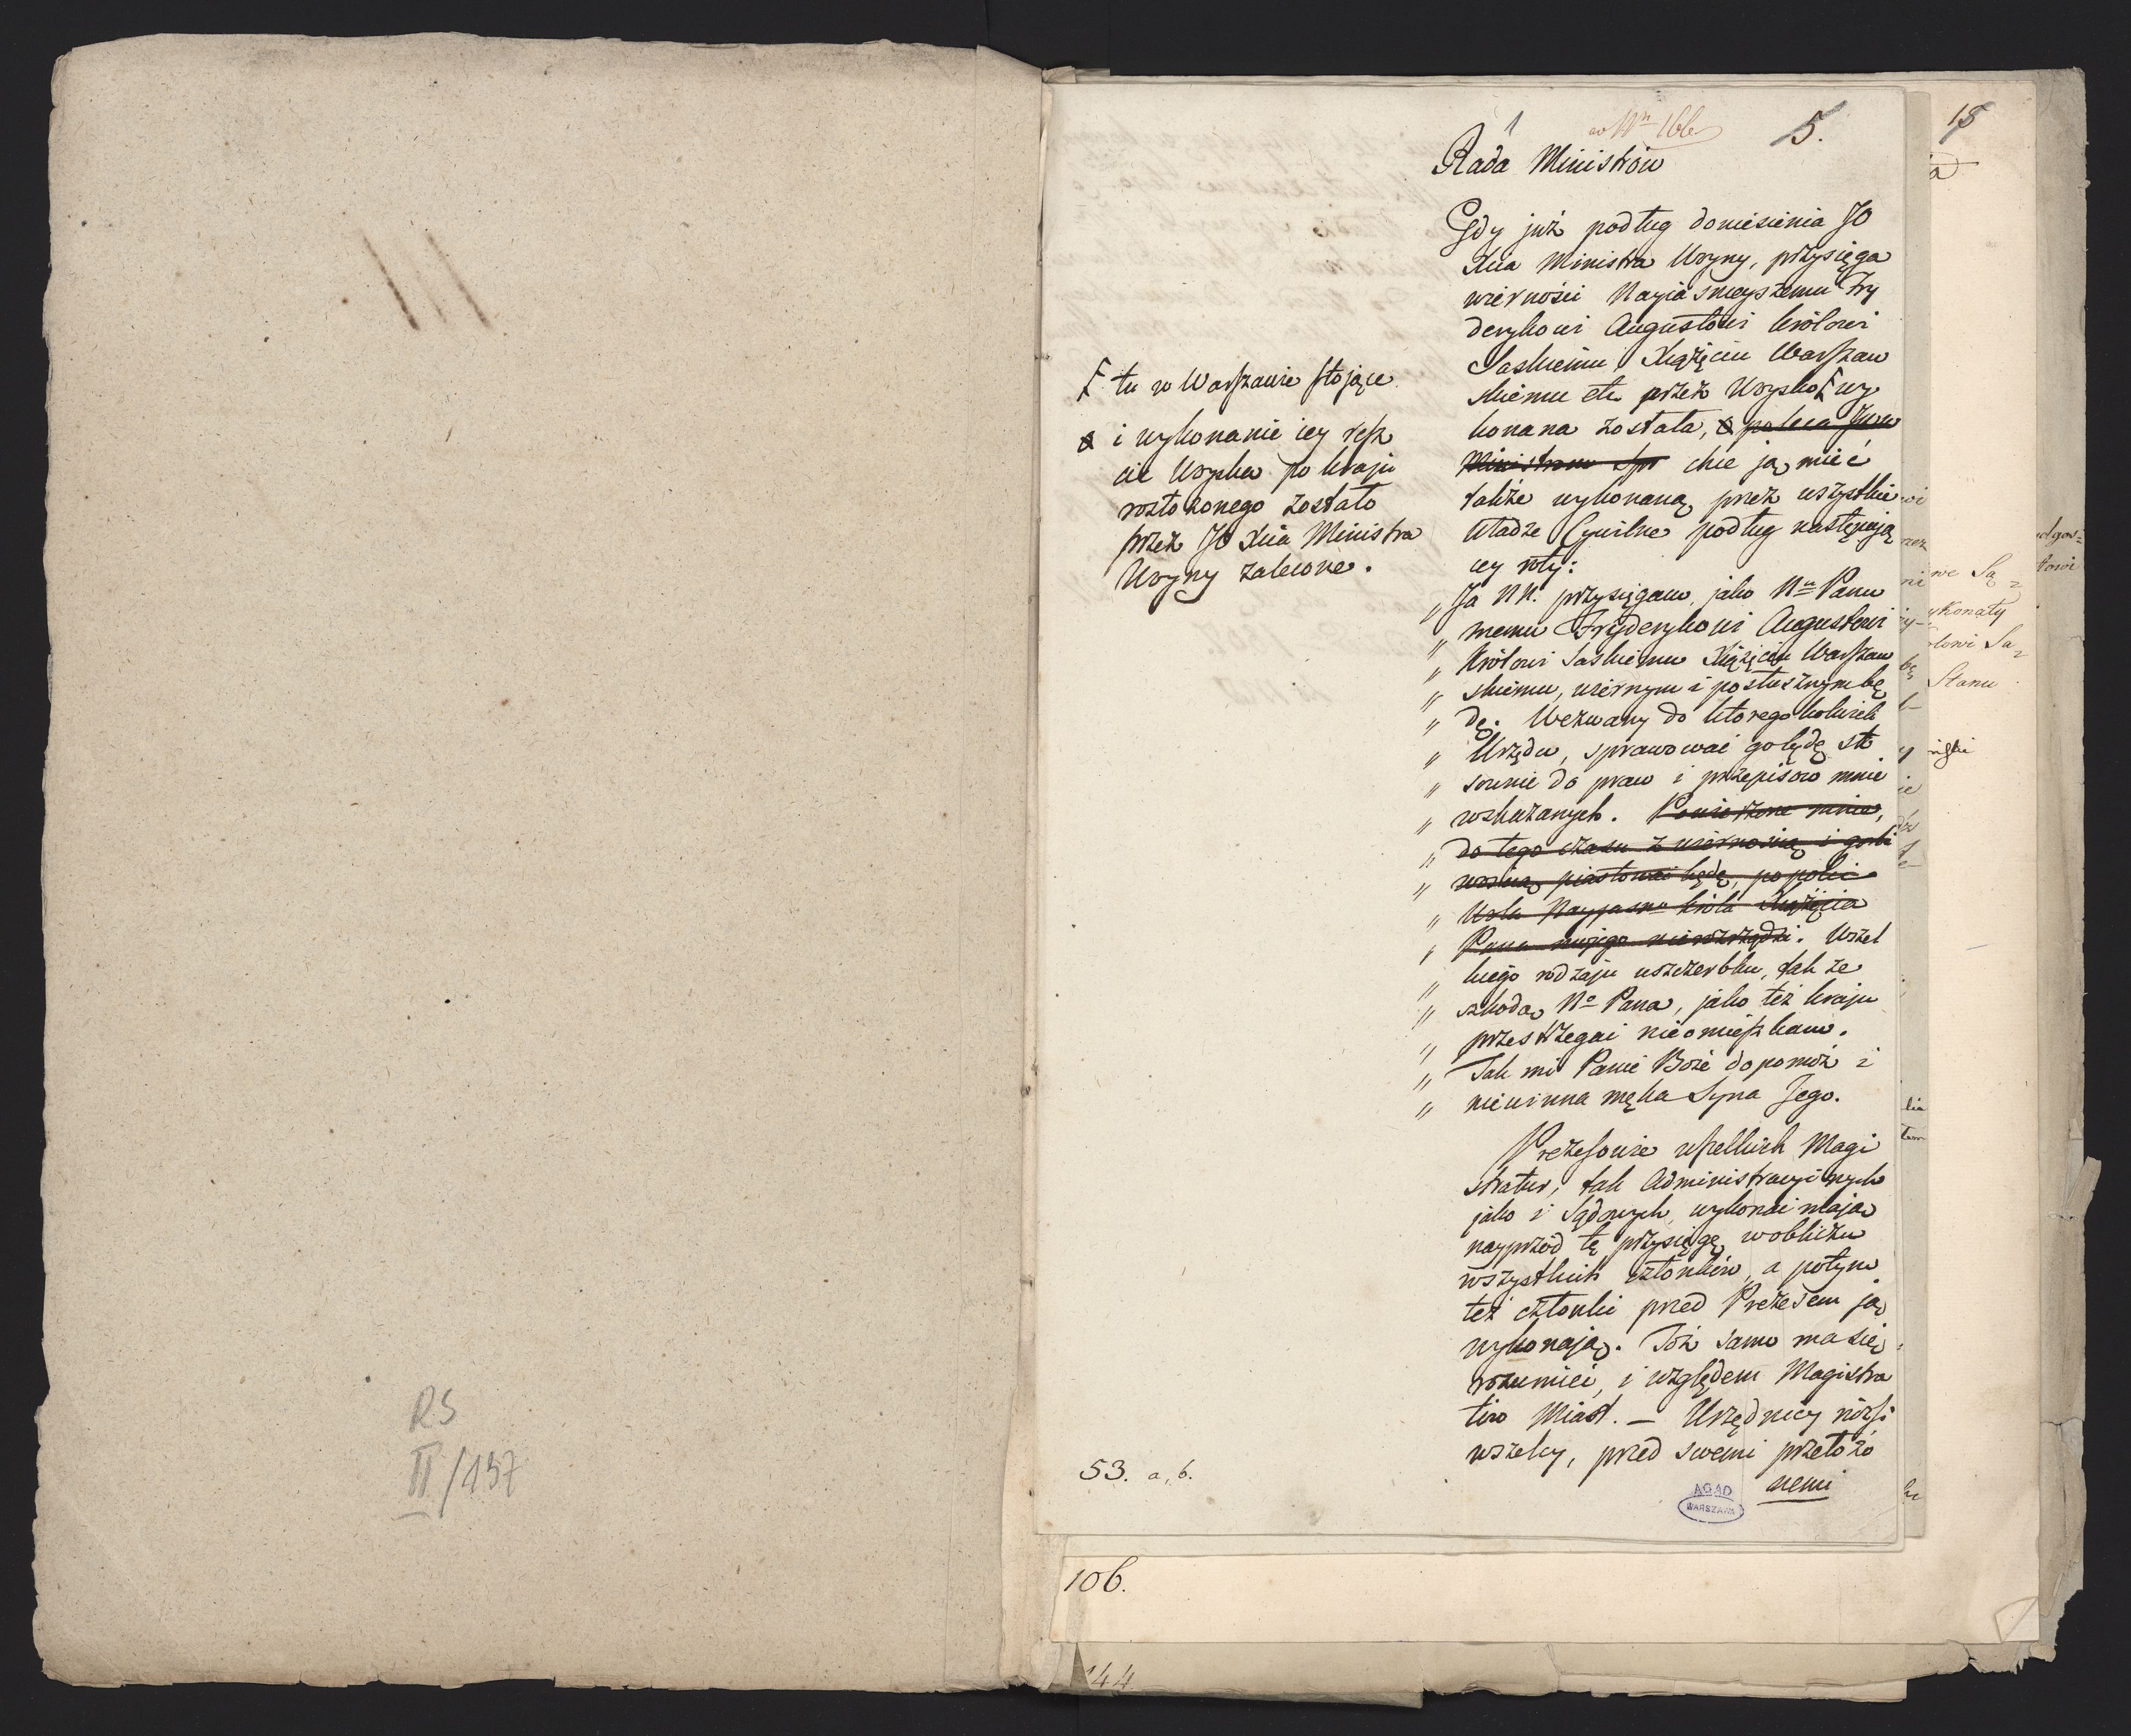 RS
II/137
1
ad Nrm 166
5.
Rada Ministrów
Gdy już podług doniesienia JO
Xcia Ministra Woyny, przysięga
wierności Nayiasnieyszemu Fry
derykowi Augustowi Królowi
Saskiemu Xiążęciu Warszaw
skiemu etc. przez Woysko F wy
konana została, a poleca
Ministrom Spr chce ją mieć
także wykonaną przez wszystkie
Władze Cywilne podług następują
cey roty:
„ Ja NN. przysięgam, jako Nu Panu
„ memu Fryderykowi Augustowi
„ Królowi Saskiemu Xiążęciu Warszaw
„ skiemu, wiernym i posłusznym bę
„ dę. Wezwany do któregokolwiek
„ Urzędu, sprawować go będę sto
„ sownie do praw i przepisow mnie
„ wskazanych. Powierzone mnie,
„ do tego czasu z wiernością i gorli
„ wością piastować będę, po
„ Nayjasno Króla Xiążęcia
„ Pana mojego nierozrządzi. Wszel
„ kiego rodzaju uszczerbku, tak ze
„ szkodą No Pana, jako też kraju
„ przestrzegać nieomieszkam.
„ Tak mi Panie Boże dopomóż i
„ niewinna męka Syna Jego.
Prezesowie wszelkich Magi
stratur, tak Administracyinych
jako i Sądowych, wykonać mają
nayprzód tę przysięgę w obliczu
wszystkich członków, a potym
też członki przed Prezesem ją
wykonają. Toż samo ma się
rozumieć, i względem Magistra
tów Miast. — Urzędnicy niżsi
wszelcy, przed swemi przełożo
nemi
F tu w Warszawie stojące
a i wykonanie iey resz
cie Woyska po kraju
rozłożonego zostało
przez JO Xcia Ministra
Woyny zalecone.
53. a, b.
AGAD
WARSZAWA
106.
144
15
we Są
ykonały
lowi Sa
Stanu